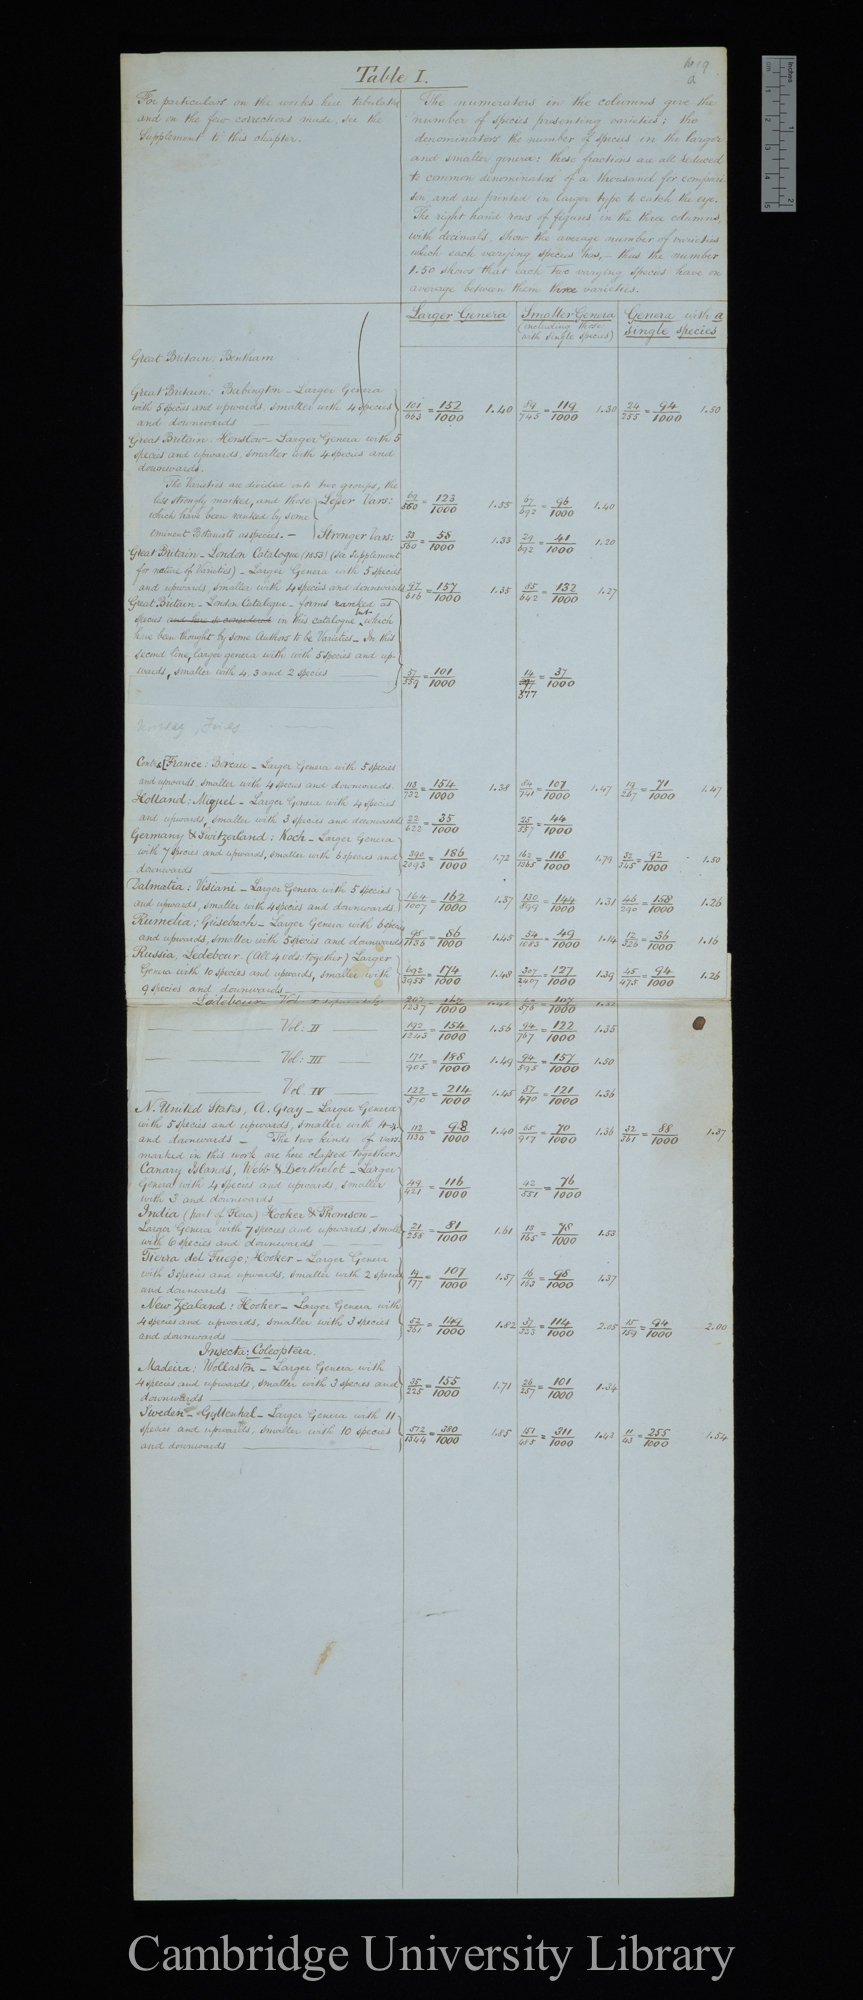 Table I.
a
For particulars on the works here tabulated
and on the few corrections made, see the
Supplement to this chapter.
The numerators in the columns give the
number of species presenting varieties; the
denominators the number of species in the larger
and smaller genera: these fractions are all reduced
to common denominators of a thousand for compari-
son, and are printed in larger type to catch the eye.
The right hand rows of figures in the three columns,
with decimals, show the average number of varieties
which each varying species has, – thus the number
1.50 shows that each two varying species have on
average between them three varieties.
Larger Genera Smaller Genera (including those with single species) Genera with a single species
Great Britain. Bentham
Great Britain: Babington – Larger Genera
with 5 species and upwards, smaller with 4 species 101/663 = 152/1000 1.40 89/745 = 119/1000 1.30 24/255 = 94/1000 1.50
and downwards
Great Britain. Henslow – Larger Genera with 5
species and upwards, smaller with 4 species and
downwards.
The Varieties are divided into two groups, the
less strongly marked, and those Lesser Vars: 69/560 = 123/1000 1.55 67/692 = 96/1000 1.40
which have been ranked by some
eminent Botanists as species. – Stronger Vars: 33/560 = 58/1000 1.33 29/692 = 41/1000 1.20
Great Britain – London Catalogue (1853) (see Supplement
for nature of Varieties) – Larger Genera with 5 species
and upwards, smaller with 4 species and downwards 97/616 = 157/1000 1.35 85/642 = 132/1000 1.27
Great Britain – London Catalogue – forms ranked as
species and here so considered in this catalogue, but which
have been thought by some Authors to be Varieties – In this
second line, larger genera with with 5 species and up-
wards, smaller with 4, 3 and 2 species 57/559 = 101/1000 14/377 = 37/1000
Fries
Central France: Boreau – Larger Genera with 5 species
and upwards, smaller with 4 species and downwards. 113/732 = 154/1000 1.38 84/741 = 107/1000 1.47 19/267 = 71/1000 1.47
Holland: Miquel – Larger Genera with 4 species
and upwards, smaller with 3 species and downwards 22/622 = 35/1000 25/557 = 44/1000
Germany & Switzerland: Koch – Larger Genera
with 7 species and upwards, smaller with 6 species and 390/2093 = 186/1000 1.72 162/1365 = 118/1000 1.79 32/345 = 92/1000 1.50
downwards
Dalmatia: Visiani – Larger Genera with 5 species
and upwards, smaller with 4 species and downwards. 164/1007 = 162/1000 1.37 130/899 = 144/1000 1.31 46/290 = 158/1000 1.26
Rumelia: Grisebach – Larger Genera with 6 species
and upwards, smaller with 5 species and downwards 98/1136 = 86/1000 1.45 54/1083 = 49/1000 1.14 12/326 = 36/1000 1.16
Russia, Ledebour – (All 4 vols. together) Larger
Genera with 10 species and upwards, smaller with 692/3955 = 174/1000 1.48 307/2407 = 127/1000 1.39 45/475 = 94/1000 1.26
9 species and downwards –
Ledebour Vol. I separately
Vol: II 192/1243 = 154/1000 1.56 94/767 = 122/1000 1.35
Vol: III 171/905 = 188/1000 1.49 94/595 = 157/1000 1.50
Vol IV 122/570 = 214/1000 1.45 57/470 = 121/1000 1.36
N. United States, A. Gray – Larger Genera
with 5 species and upwards, smaller with 4 112/1136 = 98/1000 1.40 65/917 = 70/1000 1.36 32/361 = 88/1000 1.37
and downwards – The two kinds of vars:
marked in this work are here classed together.
Canary Islands, Webb & Berthelot – Larger
Genera with 4 species and upwards, smaller 49/421 = 116/1000 42/551 = 76/1000
with 3 and downwards
India (part of Flora) Hooker & Thomson –
Larger Genera with 7 species and upwards, smaller 21/258 = 81/1000 1.61 13/165 = 78/1000 1.53
with 6 species and downwards
Tierra del Fuego: Hooker – Larger Genera
with 3 species and upwards, smaller with 2 species 19/177 = 107/1000 1.57 16/163 = 98/1000 1.37
and downwards
New Zealand: Hooker – Larger Genera with
4 species and upwards, smaller with 3 species 52/361 = 149/1000 1.82 37/323 = 114/1000 2.05 15/159 = 94/1000 2.00
and downwards
Insecta: Coleoptera.
Madeira: Wollaston – Larger Genera with
4 species and upwards, smaller with 3 species and 35/225 = 155/1000 1.71 26/257 = 101/1000 1.34
downwards
Sweden – Gyllenhal – Larger Genera with 11
species and upwards, smaller with 10 species 572/1544 = 380/1000 1.85 151/485 = 311/1000 1.43 11/43 = 255/1000 1.54
and downwards
Inches
cm
1
2
3
4
5
1
2
Cambridge University Library